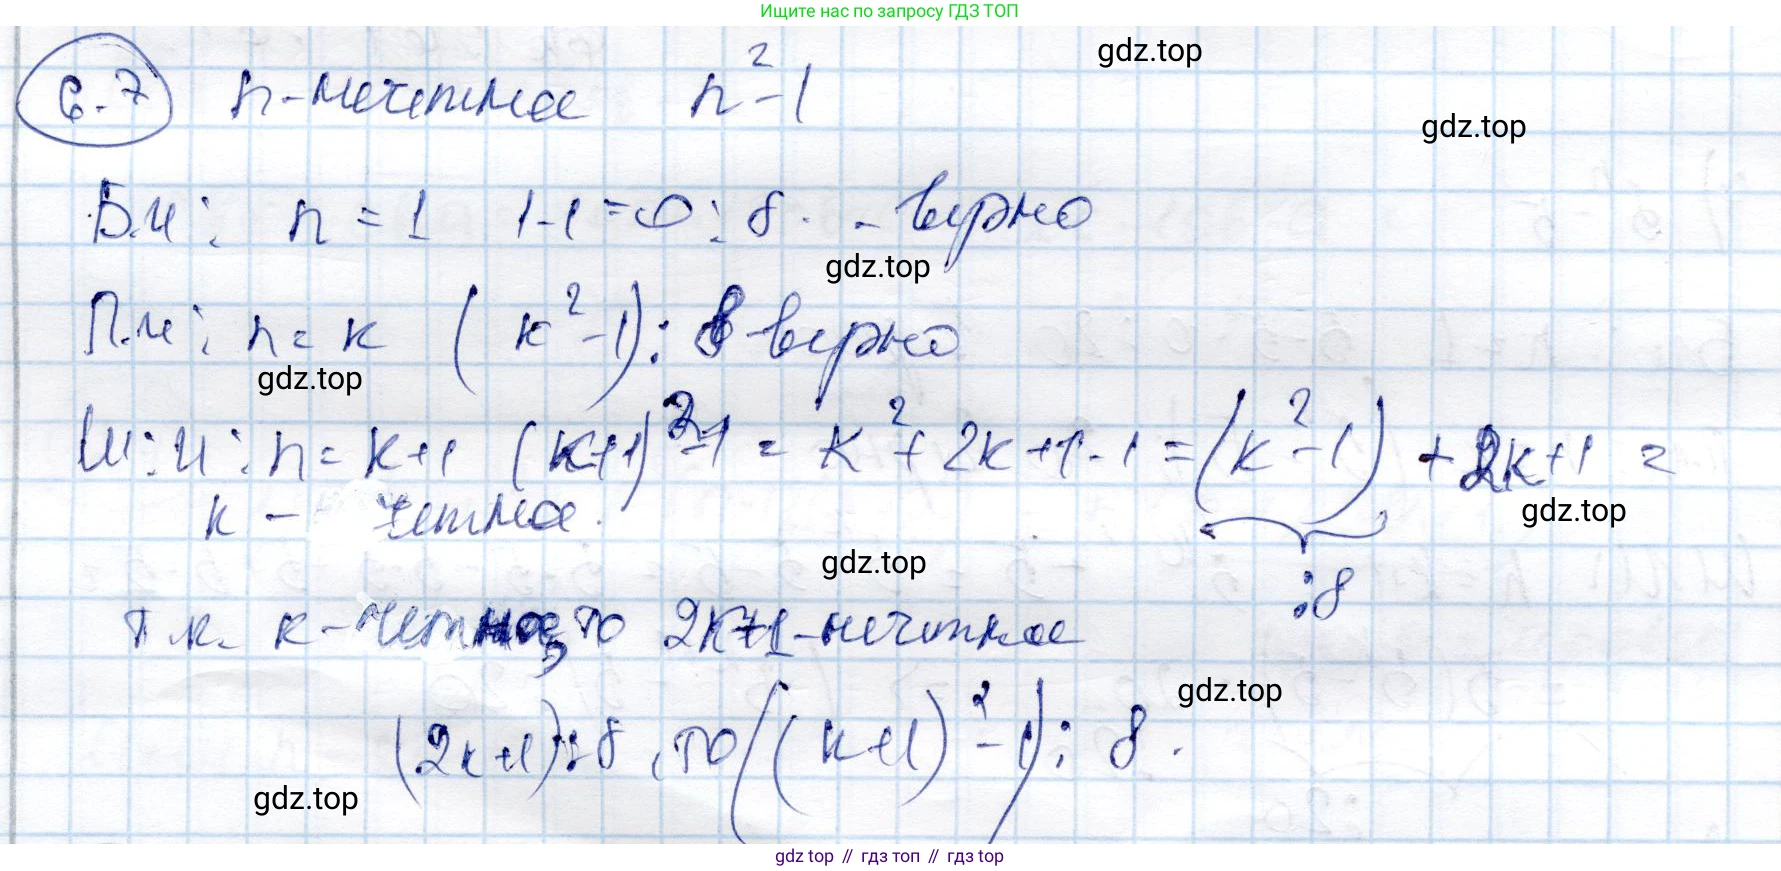 Ищите нас по запросу ГДЗ ТОП
6.7 n-нечетное n²-1
gdz.top
gdz.top
Б.И: n = 1 1-1=0 ⋮ 8. - верно
gdz.top
П.И: n = k (k²-1) ⋮ 8 - верно
gdz.top
Ш.И: n = k+1 (k+1)²-1 = k²+2k+1-1 = (k²-1) + 2k+1 =
k - четное.
gdz.top
gdz.top
⋮8
т.к. k - четное, то 2k+1 - нечетное
gdz.top
(2k+1)⋮8, то ((k+1)²-1) ⋮ 8.
gdz.top
gdz top // гдз топ // gdz top